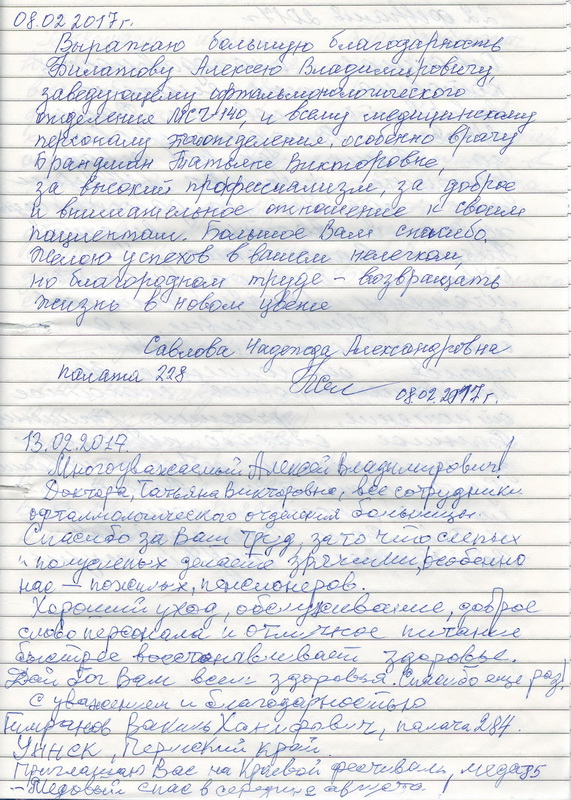 08.02.2017г.
Выражаю большую благодарность
Филатову Алексею Владимировичу,
заведующему офтальмологического
отделения МСЧ-140, и всему медицинскому
персоналу отделения, особенно врачу
Брандман Татьяне Викторовне,
за высокий профессионализм, за доброе
и внимательное отношение к своим
пациентам. Большое Вам спасибо.
Желаю успехов в вашем нелегком,
но благородном труде – возвращать
жизнь в новом цвете
Савлова Надежда Александровна
палата 228
08.02.2017г.
13.02.2017.
Многоуважаемый Алексей Владимирович!
Доктора, Татьяна Викторовна, все сотрудники
офталмологического отделения больницы.
Спасибо за Ваш труд, за то что слепых
полуслепых делаете зрячими, особенно
нас – пожилых, пенсионеров.
Хороший уход, обслуживание, доброе
слово персонала и отличное питание
быстрее восстанавливает здоровье.
Дай Бог Вам всем здоровья. Спасибо еще раз!
С уважением и благодарностью
Вакиль Ханифович, палата 284.
Уинск, Пермский край.
Приглашаю Вас на Краевой фестиваль меда
– Медовый спас в середине августа!